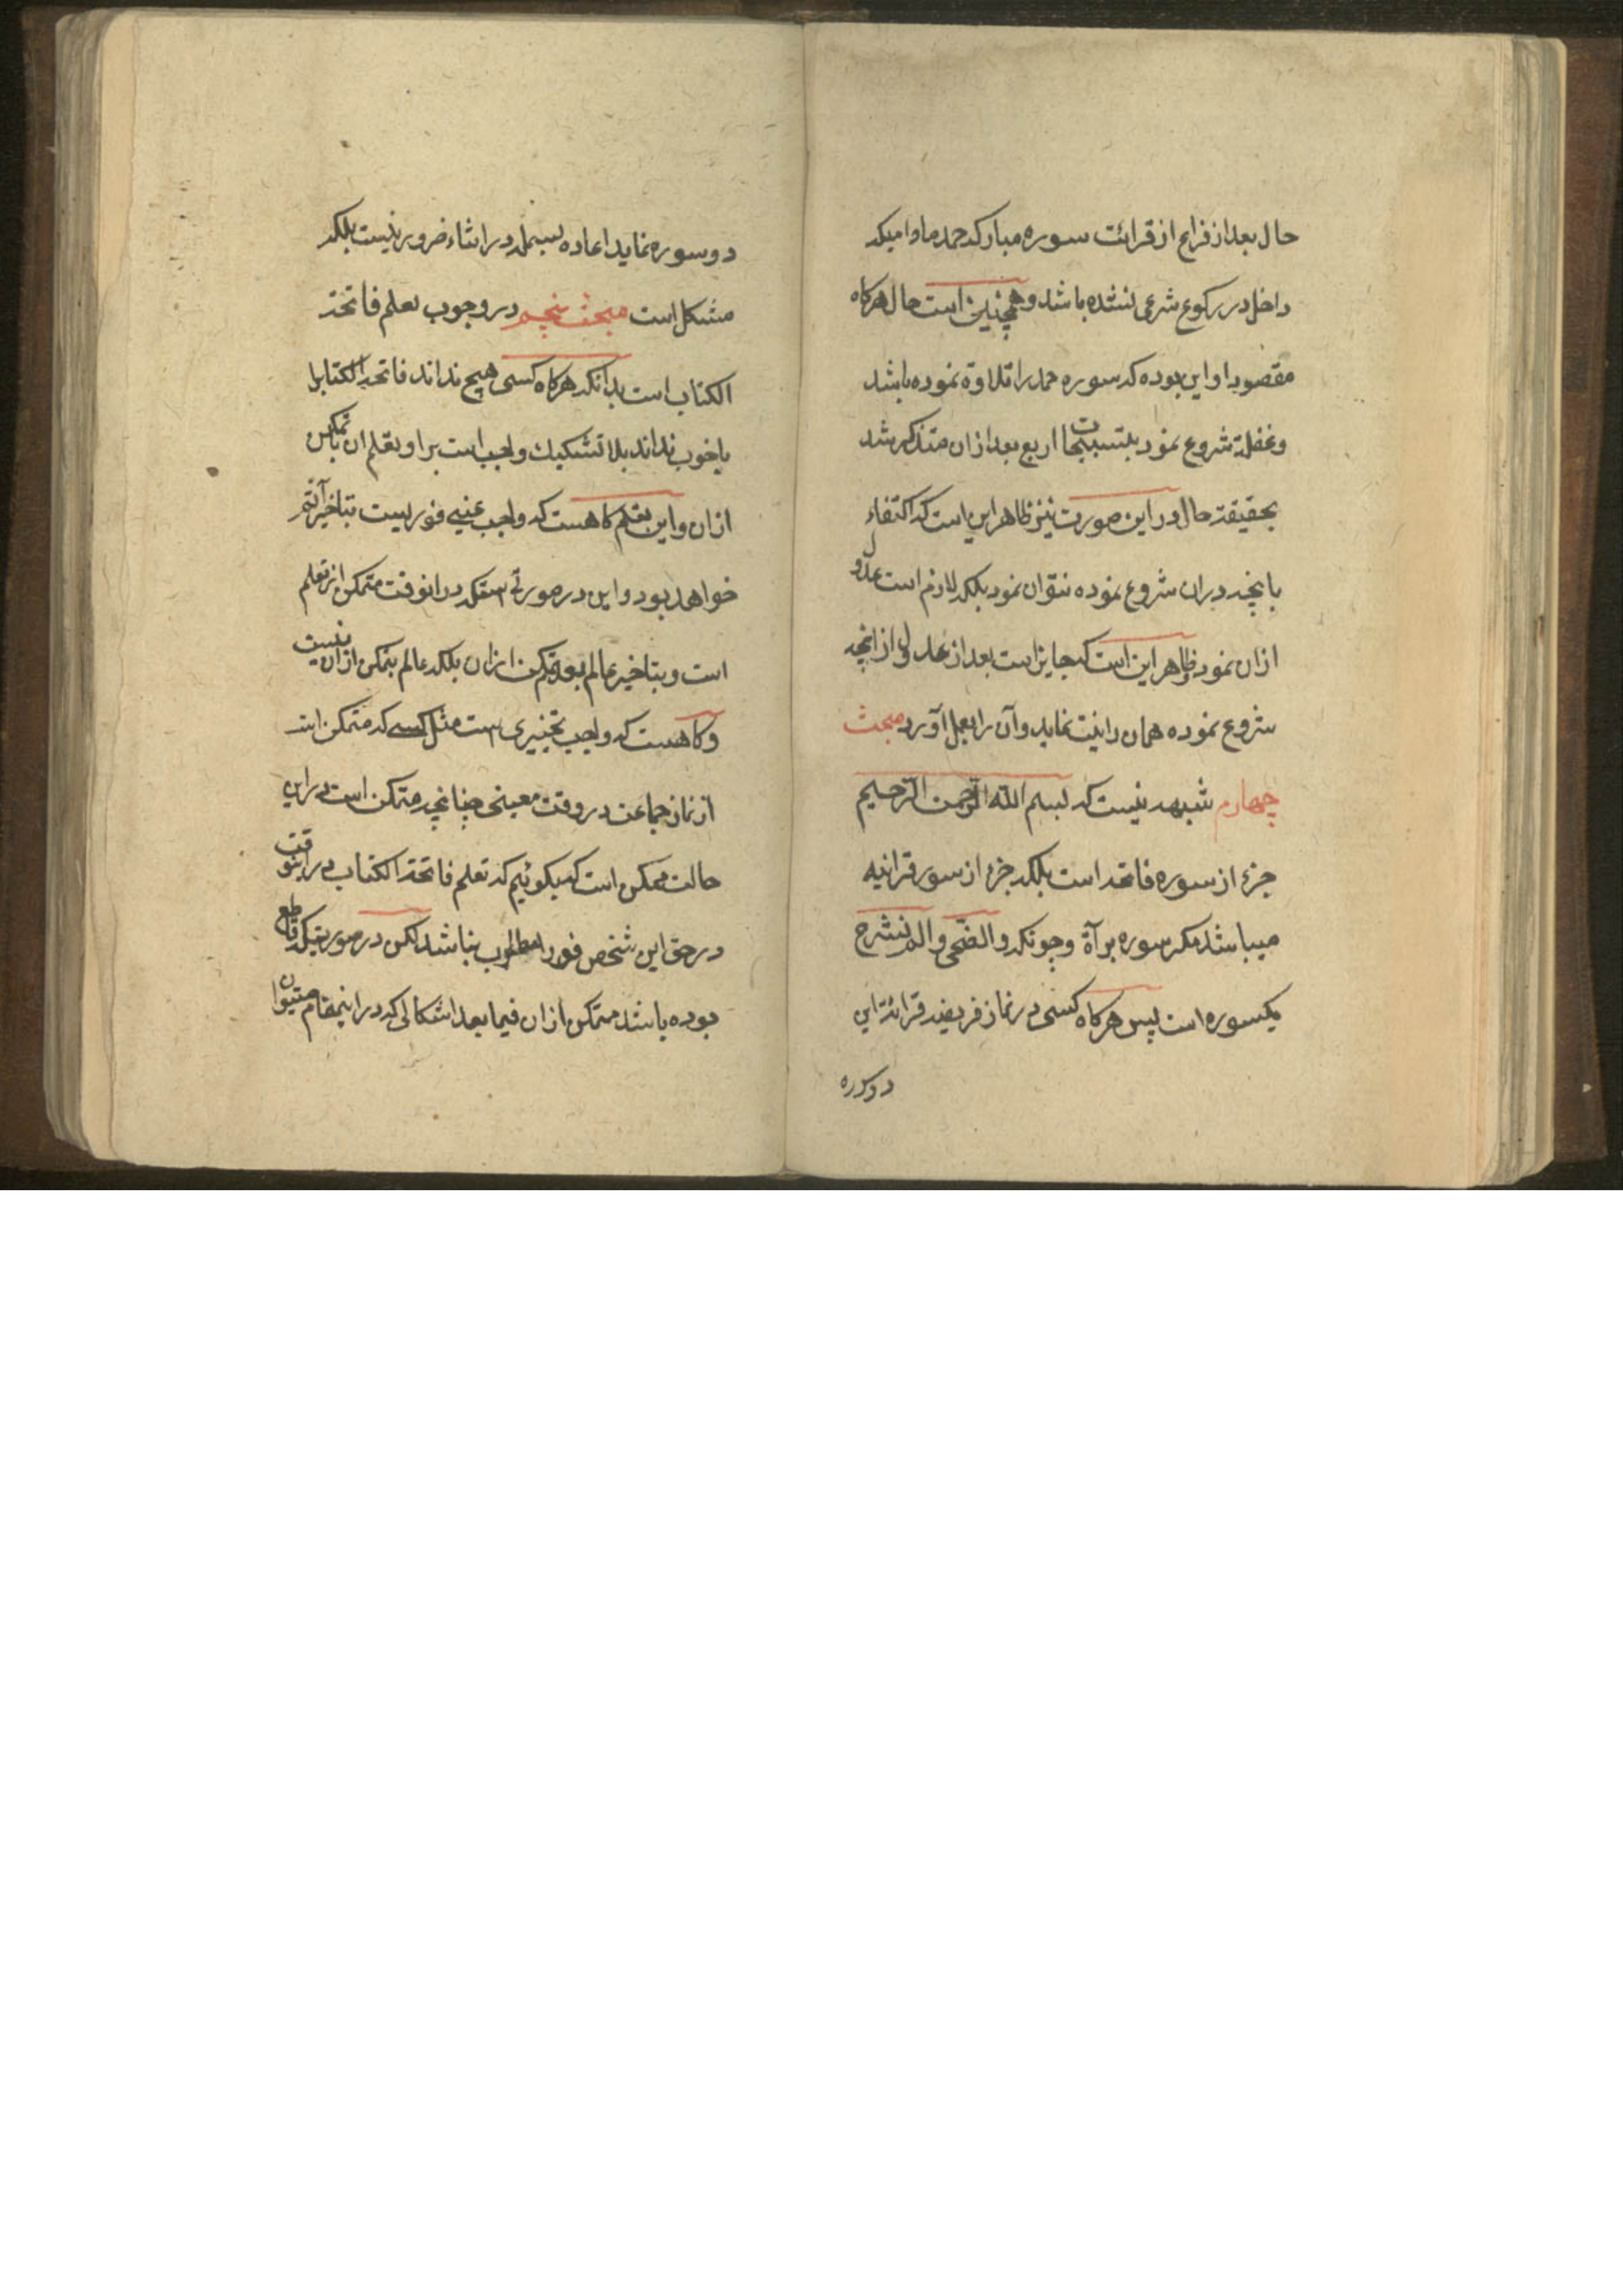 حال بعد از فراغ از قرائت سوره مبارکه حمد مادامیکه
داخل در رکوع شرعی نشده باشد و همچنین است حال هرکاه
مقصود او این بوده که سوره حمد را تلاوة نموده باشد
وغفلة شروع نمود بتسبیحات اربع بعد از ان متذکر شد
بحقیقة حال در این صورت نیز ظاهر این است که اکتفاء
بانچه دران شروع نموده نتوان نمود بلکه لازم است عدول
ازان نمود و ظاهر این است که جایز است بعد از عدول از انچه
شروع نموده همان را نیت نماید و آن را بعمل آورد مبحث
چهارم شبهه نیست که بسم الله الرحمن الرحیم
جزء از سوره فاتحه است بلکه جزء از سور قرانیه
میباشد مکر سوره برآة و چونکه والضحی و الم نشرح
یکسوره است پس هرکاه کسی در نماز فریضه قرائة این
دوسوره
دو سوره نماید اعاده بسمله در اثناء ضرور نیست بلکه
مشکل است مبحث پنجم در وجوب تعلم فاتحة
الکتاب است بدانکه هرکاه کسی هیچ نداند فاتحة الکتاب یا
یا خوب نداند بلا تشکیك واجب است بر او تعلم ان با تمکن
ازان و این تعلم کاهست که واجب عینی فوریست بتاخیر آثم
خواهد بود و این در صورتی است که در انوقت متمکن از تعلم
است و بتاخیر عالم بعدم تمکن ازان بلکه عالم بتمکن ازان نیست
و کاهست که واجب تخییری است مثل کسی که متمکن است
از نماز جماعت در وقت معینی چنانچه متمکن است در این
حالت ممکن است که بکوئیم که تعلم فاتحة الکتاب در اینوقت
در حق این شخص فورا مطلوب نباشد لکن در صورتیکه قاطع
بوده باشد متمکن ازان فیما بعد اشکالی که در اینمقام میتوان